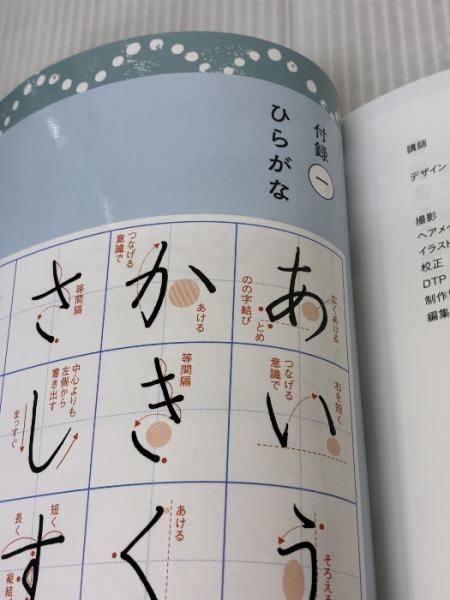 付録一
ひらがな
あ
広くあける
とめ
のの字結び
い
右を短く
つなげる
意識で
う
そろえる
か
つなげる
意識で
あける
き
等間隔
く
あける
さ
等間隔
し
中心よりも
左側から
書き出す
まっすぐ
す
短く
長く
講師
デザイン
撮影
ヘアメイ
イラスト
校正
DTP
制作
編集